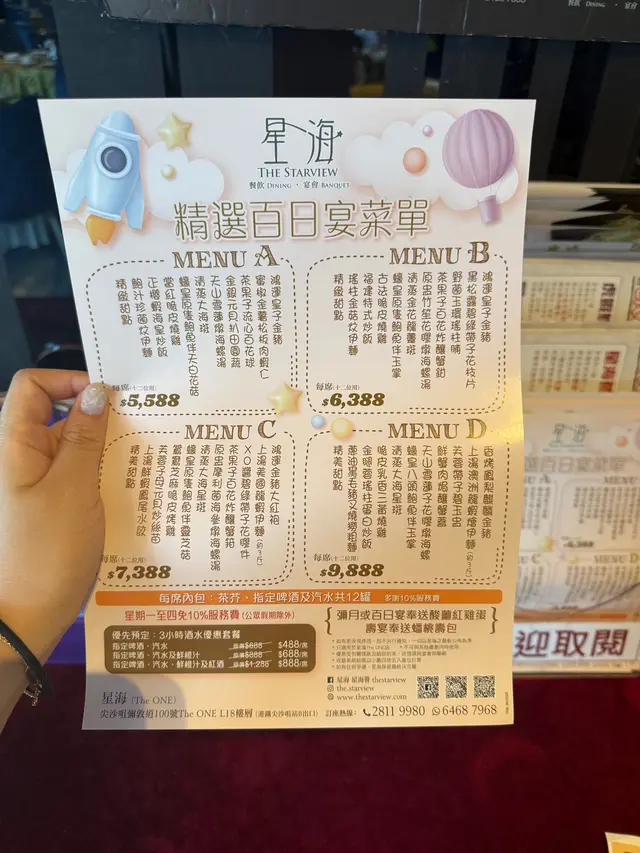 星海
THE STARVIEW
餐飲 DINING · 宴會 BANQUET
精選百日宴菜單
MENU A
鴻運皇子金豬
蜜椒金薯松板肉蝦仁
茶果子流心百花球
金銀元貝扒田園蔬
天山雪蓮燉海螺湯
清蒸大海斑
蠔皇原隻鮑魚伴天白花菇
當紅脆皮燒雞
正櫻蝦海皇炒飯
鮑汁珍菌炆伊麵
精緻甜點
每席(十二位用)
$5,588
MENU B
鴻運皇子金豬
黑松露碧綠帶子花枝片
野菌玉環瑤柱脯
茶果子百花炸釀蟹鉗
原盅竹笙花膠燉海螺湯
清蒸金花龍躉斑
蠔皇原隻鮑魚伴玉掌
古法脆皮燒雞
福建特式炒飯
瑤柱金菇炆伊麵
精緻甜點
每席(十二位用)
$6,388
MENU C
鴻運金豬大紅袍
上湯美國龍蝦伊麵(約3斤)
XO醬碧綠帶子花膠件
茶果子百花炸釀蟹箝
原盅摩利菌海參燉海螺湯
清蒸大海星斑
蠔皇原隻鮑魚伴靈芝菇
鴛鴦芝麻脆皮烤雞
芙蓉子母元貝炒絲苗
上湯鮮蝦鳳尾水餃
精美甜點
每席(十二位用)
$7,388
MENU D
香烤鳳梨麒麟金豬
上湯澳洲龍蝦燴伊麵(約3斤)
芙蓉帶子碧玉盅
鮮蟹肉焗釀蟹蓋
天山雪蓮子花膠燉海螺
蠔皇八頭鮑魚伴玉掌
清蒸大海星斑
脆皮乳香三黃燒雞
金銀蓉瑤柱蛋白炒飯
蔥油黑毛豬叉燒撈粗麵
精美甜點
每席(十二位用)
$9,888
每席內包：茶芥、指定啤酒及汽水共12罐 多謝10%服務費
星期一至四免10%服務費 (公眾假期除外)
優先預定：3小時酒水優惠套餐
指定啤酒、汽水 原價$688 $488/席
指定啤酒、汽水及鮮橙汁 原價$888 $688/席
指定啤酒、汽水、鮮橙汁及紅酒 原價$1,288 $888/席
彌月或百日宴奉送酸薑紅雞蛋
壽宴奉送蟠桃壽包
星海 星海薈 thestarview
the.starview
www.thestarview.com
星海 (The ONE)
尖沙咀彌敦道100號The ONE L18樓層 (港鐵尖沙咀站B出口) 訂座熱線： 2811 9980 6468 7968
迎取閱